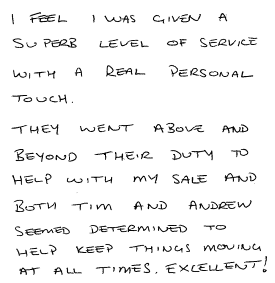 I FEEL I WAS GIVEN A
SUPERB LEVEL OF SERVICE
WITH A REAL PERSONAL
TOUCH.
THEY WENT ABOVE AND
BEYOND THEIR DUTY TO
HELP WITH MY SALE AND
BOTH TIM AND ANDREW
SEEMED DETERMINED TO
HELP KEEP THINGS MOVING
AT ALL TIMES. EXCELLENT!